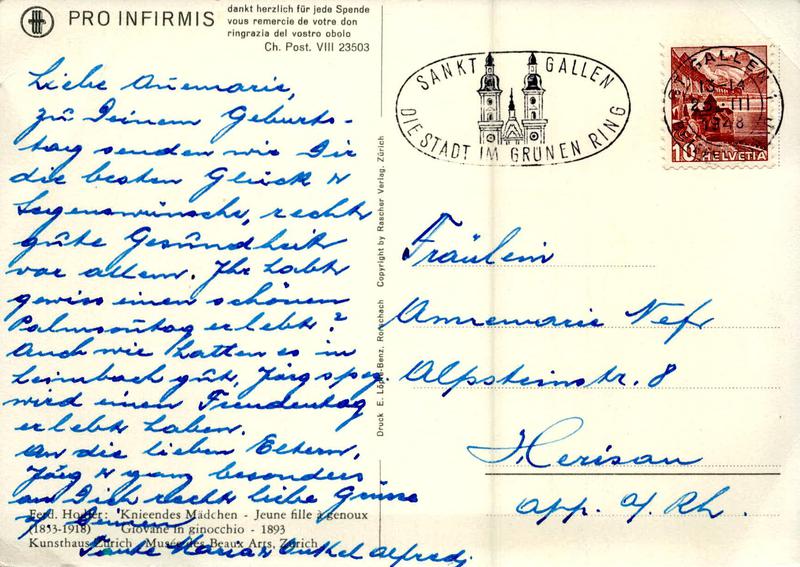 PRO INFIRMIS
dankt herzlich für jede Spende
vous remercie de votre don
ringrazia del vostro obolo
Ch. Post. VIII 23503
Liebe Annemarie,
zu Deinem Geburts-
tag senden wir Dir
die besten Glück &
Segenswünsche, recht
gute Gesundheit
vor allem. Ihr habt
gewiss einen schönen
Palmsontag erlebt?
Auch wir hatten es in
Leimbach gut, Jörg spez.
wird einen Freudentag
erlebt haben.
An die lieben Eltern,
Jörg & ganz besonders
an Dich recht liebe Grüsse
v. Deinen
Tante Maria & Onkel Alfred
Ferd. Hodler: Knieendes Mädchen - Jeune fille à genoux
(1853-1918) Giovane in ginocchio - 1893
Kunsthaus Zürich Musée des Beaux Arts, Zürich
Druck E. Löpfe-Benz, Rorschach Copyright by Rascher Verlag, Zürich
SANKT GALLEN
DIE STADT IM GRÜNEN RING
ST. GALLEN 1
13-14
III
1948
10 HELVETIA
Fräulein
Annemarie Nef
Alpsteinstr. 8
Herisau
App. A/Rh.